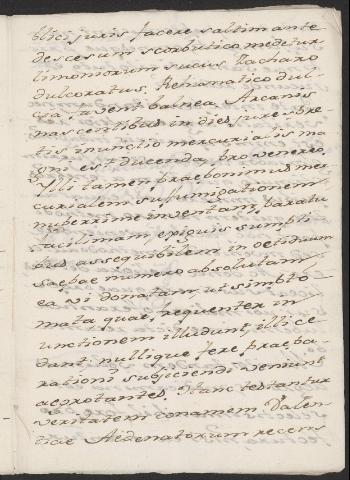 blici juris facere saltim ante
descesum scorbutico medetur
limoniorum sucus Zacharo
dulcoratus, Rehumatico dul-
cia juvent balnea. Arcanis
nascentibus in dies jure spre-
tis inunctio mercurialis ma
gni est ducenda pro venereo
Illi tamen praebonimus mer
curialem suffumigationem
nuperrime inventam, paratu
facilimam, exiguis sumpti
bus assequibilem in octiduum
saepae numero absolutam
ea vi donatam, ut simpto
mata quae frequenter in
unctionem illudunt, illi ce
dant nullique fere praepa-
rationi subjiciendi veniunt
aegrotantes. Hanc testantur
veritatem conamem Valen-
tiae Aedenatorum recens